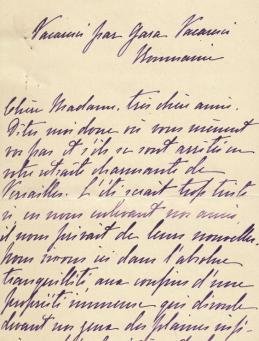 Vacaresci par Gara Vacaresci
Roumanie
Chère Madame, très chère amie.
Dites moi donc où vous mènent
vos pas et s'ils se sont arrêtés en
votre retraite charmante de
Versailles. L'été serait trop triste
si en nous enlevant nos amis
il nous privait de leurs nouvelles.
Nous vivons ici dans l'absolue
tranquillité aux confins d'une
propriété immense qui déroule
devant nos yeux des plaines infi-